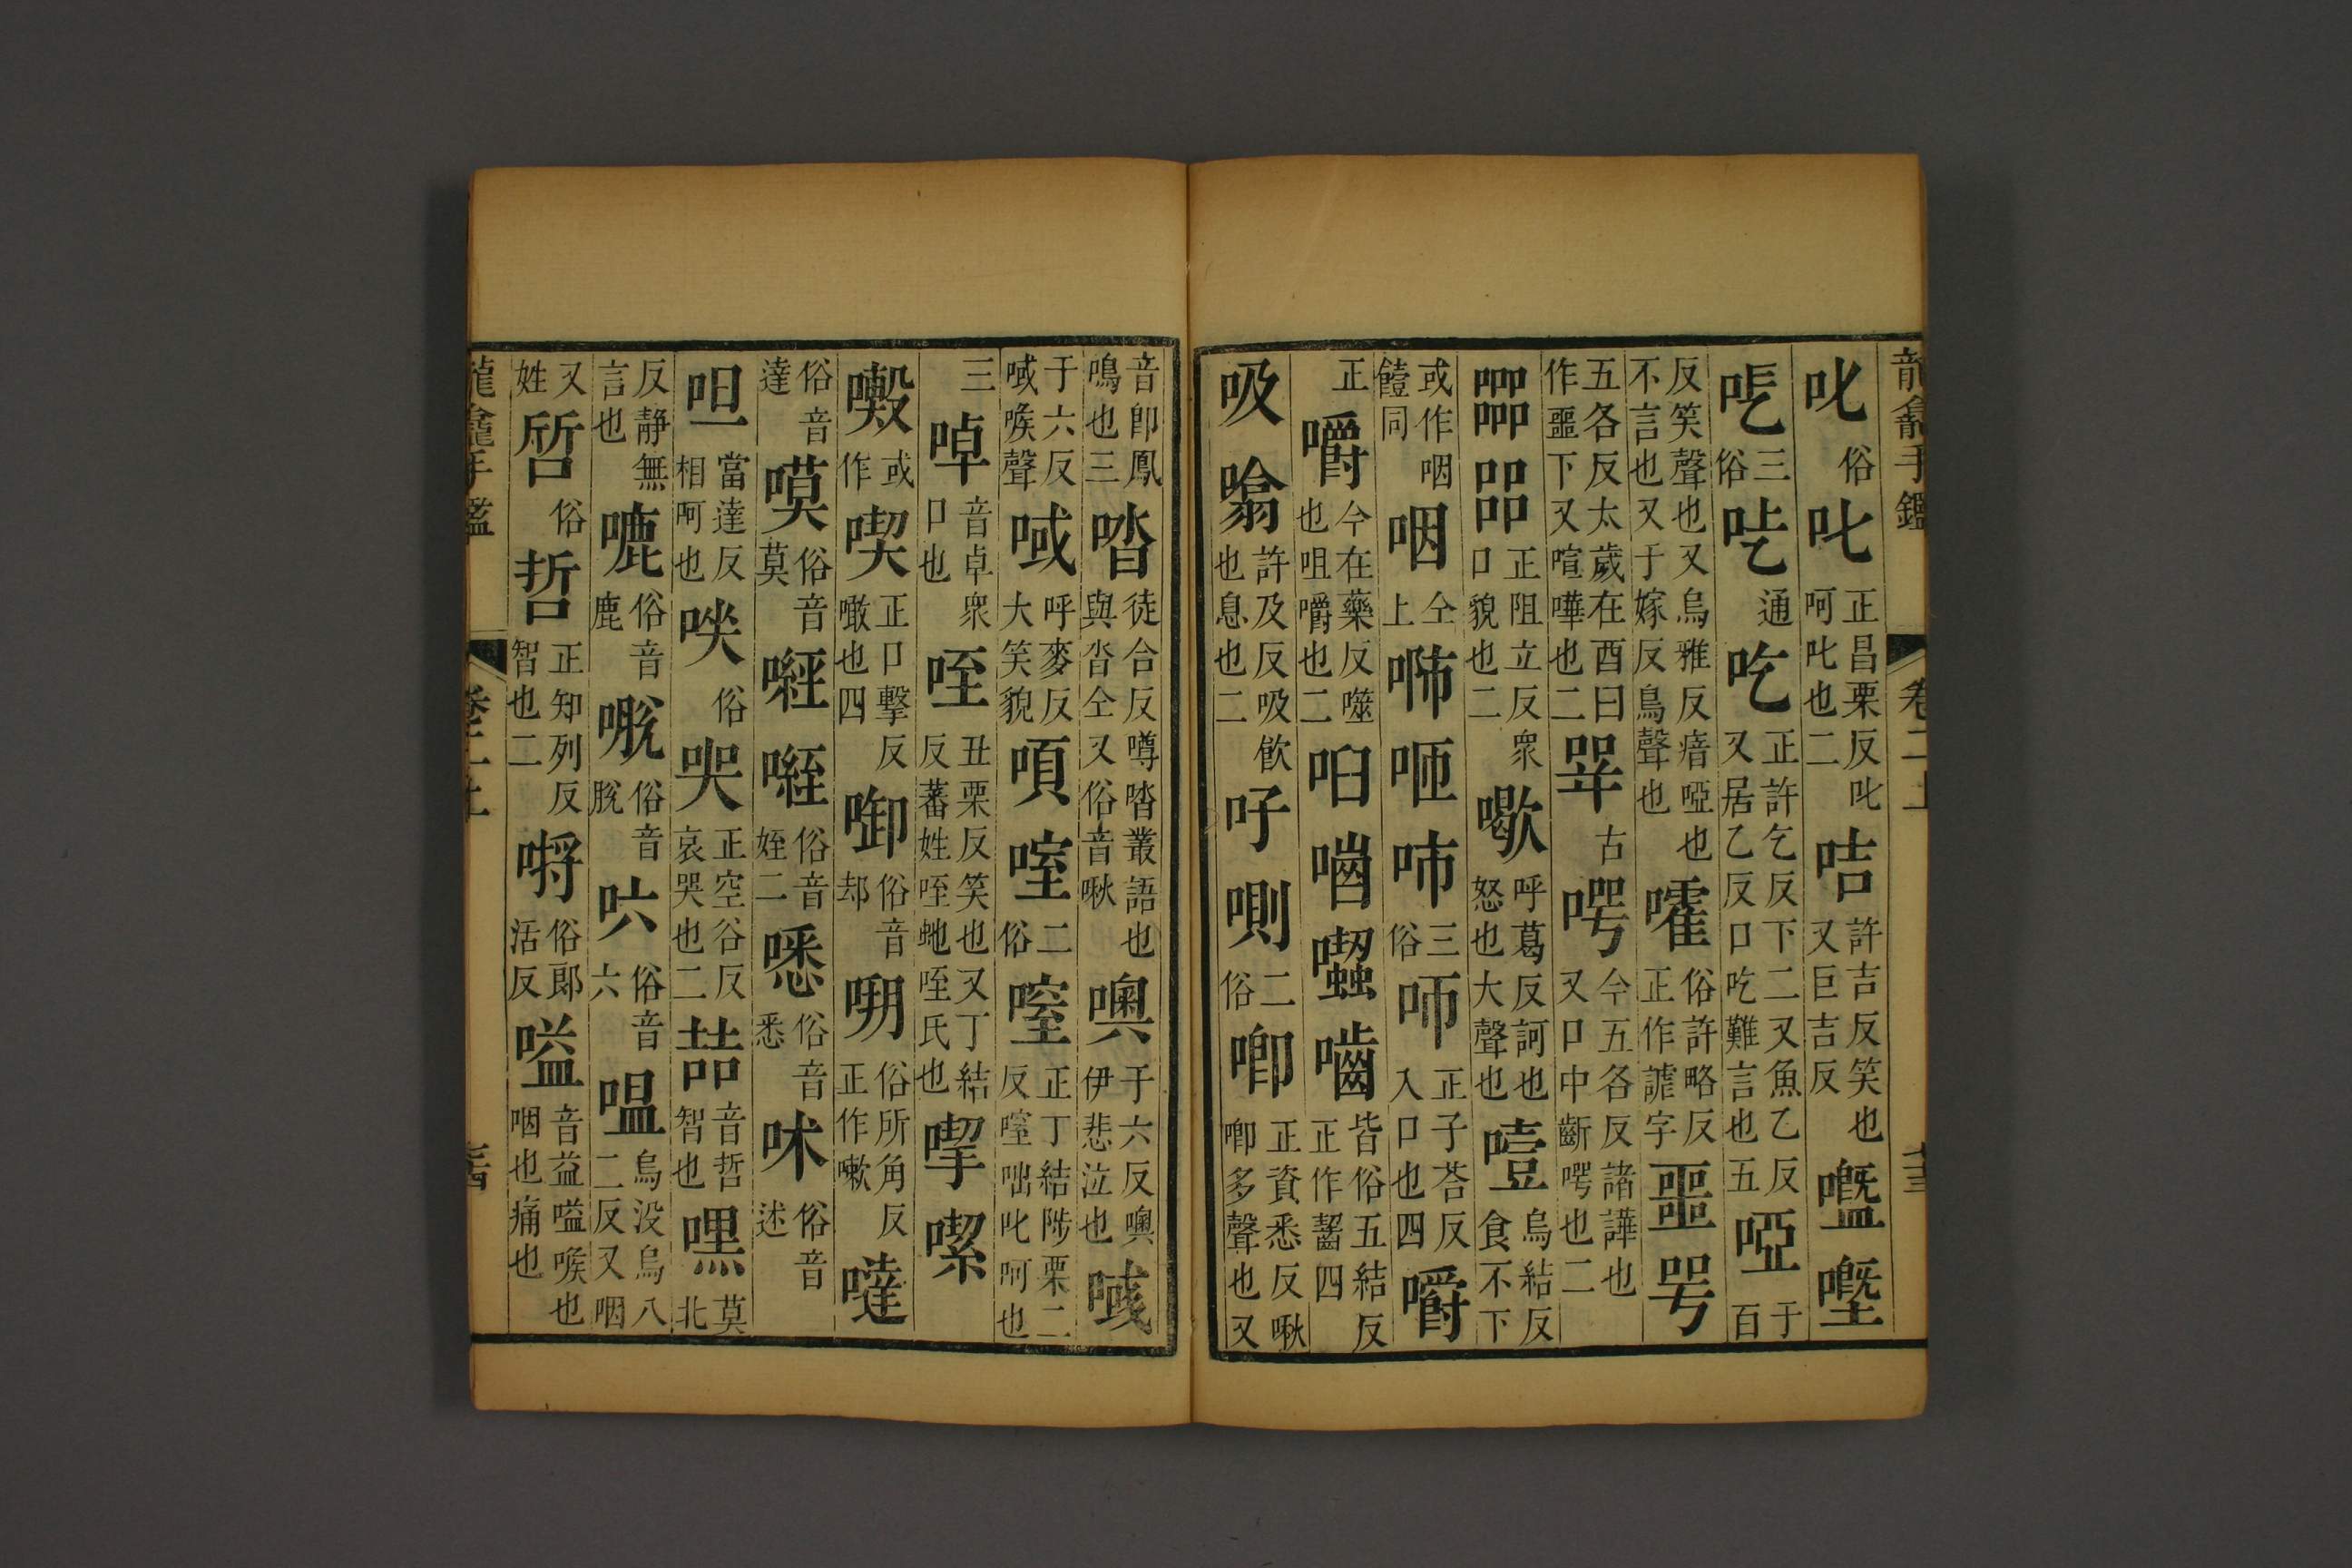 龍龕手鑑 卷二上 七十三
𠮟俗叱正昌栗反叱呵叱也二咭許吉反笑也又巨吉反𡄽𡄣
俗三𠯏通吃正許乞反下二又魚乙反又居乙反口吃難言也五啞于百
反笑聲也又烏雅反瘖啞也不言也又于嫁反鳥聲也嚯俗許略反正作謔字噩咢
五各反太歲在酉曰作噩下又喧嘩也二㖾古㗁今五各反諸譁也又口中齗㗁也二
𠾅㗊正阻立反衆口貌也二㰤呼葛反訶也怒也大聲也噎烏結反食不下
或作咽饐同咽仝上㖕咂㕹俗三咂正子荅反入口也四嚼
正嚼今在藥反噬也咀嚼也二𠰋囓嚙皆俗五結反正作齧四
吸噏許及反吸飲也息也二吇唎俗二喞正資悉反啾喞多聲也又
音卽鳳鳴也三嗒徒合反噂嗒叢語也與沓仝又俗音啾噢于六反噢伊悲泣也㖪
于六反㖪喉聲㖪呼麥反大笑貌㖽㗌俗二㗧正丁結陟栗二反㗌咄叱呵也
三啅音卓衆口也咥丑栗反笑也又丁結反蕃姓咥虵咥氏也㓶㗫
㗘或作喫正口擊反噉也四㖡俗音却哵俗所角反正作嗽噠
俗音達嗼俗音莫𠹗㗌俗音姪二𠺕俗音悉㖅俗音述
呾當達反相呵也㗖俗哭正空谷反哀哭也二喆音哲智也嘿莫北
反静無言也嘛俗音鹿㗶俗音脫𠯿俗音六嗢烏没烏八二反又咽
又姓㖄俗哲正知列反智也二哷俗郎活反嗌音益嗌喉也咽也痛也
龍龕手鑑 卷二上 七十四